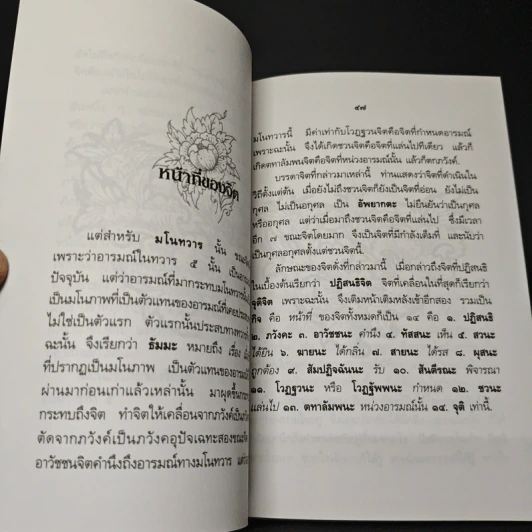 หน้าที่ของจิต
แต่สำหรับ มโนทวาร นั้น
เพราะว่าอารมณ์ในทวาร ๕ นั้น เป็น
ปัจจุบัน แต่ว่าอารมณ์ที่มากระทบมโนทวาร
เป็นมโนภาพที่เป็นตัวแทนของอารมณ์
ไม่ใช่เป็นตัวแรก ตัวแรกนั้นประสบทาง
ฉะนั้น จึงเรียกว่า ธัมมะ หมายถึง เรื่อง
ที่ปรากฏเป็นมโนภาพ เป็นตัวแทนของอารมณ์
ผ่านมาก่อนเก่าแล้วเหล่านั้น มาผุดขึ้น
กระทบถึงจิต ทำจิตให้เคลื่อนจากภวังค์
ตัดจากภวังค์เป็นภวังคุปัจเฉทะสองขณะ
อาวัชชนจิตคำนึงถึงอารมณ์ทางมโนทวาร
๔๗
มโนทวารนี้ มีค่าเท่ากับโวฏฐวนจิตคือจิตที่กำหนดอารมณ์
เพราะฉะนั้น จึงได้เกิดชวนจิตคือจิตที่แล่นไปทีเดียว แล้วก็
เกิดตทาลัมพนจิตคือจิตที่หน่วงอารมณ์นั้น แล้วก็ตกภวังค์
บรรดาจิตที่กล่าวมาเหล่านี้ ท่านแสดงว่าจิตที่ดำเนินใน
วิถีตั้งแต่ต้น เมื่อยังไม่ถึงชวนจิตก็ยังเป็นจิตที่อ่อน ยังไม่เป็น
กุศล ไม่เป็นอกุศล เป็น อัพยากตะ ไม่ยืนยันว่าเป็นกุศล
หรืออกุศล แต่ว่าเมื่อมาถึงชวนจิตคือจิตที่แล่นไป ซึ่งมีเวลา
อีก ๗ ขณะจิตโดยมาก จึงเป็นจิตที่มีกำลังเต็มที่ และนับว่า
เป็นกุศลอกุศลตั้งแต่ชวนจิตนี้
ลักษณะของจิตดั่งที่กล่าวมานี้ เมื่อกล่าวถึงจิตที่ปฏิสนธิ
ในเบื้องต้นเรียกว่า ปฏิสนธิจิต จิตที่เคลื่อนในที่สุดก็เรียกว่า
จุติจิต เพราะฉะนั้น จึงเติมหน้าเติมหลังเข้าอีกสอง รวมเป็น
กิจ คือ หน้าที่ ของจิตทั้งหมดก็เป็น ๑๔ คือ ๑. ปฏิสนธิ
๒. ภวังคะ ๓. อาวัชชนะ คำนึง ๔. ทัสสนะ เห็น ๕. สวนะ
ได้ยิน ๖. ฆายนะ ได้กลิ่น ๗. สายนะ ได้รส ๘. ผุสนะ
ถูกต้อง ๙. สัมปฏิจฉันนะ รับ ๑๐. สันตีรณะ พิจารณา
๑๑. โวฏฐวนะ หรือ โวฏฐัพพนะ กำหนด ๑๒. ชวนะ
แล่นไป ๑๓. ตทาลัมพนะ หน่วงอารมณ์นั้น ๑๔. จุติ เท่านี้.